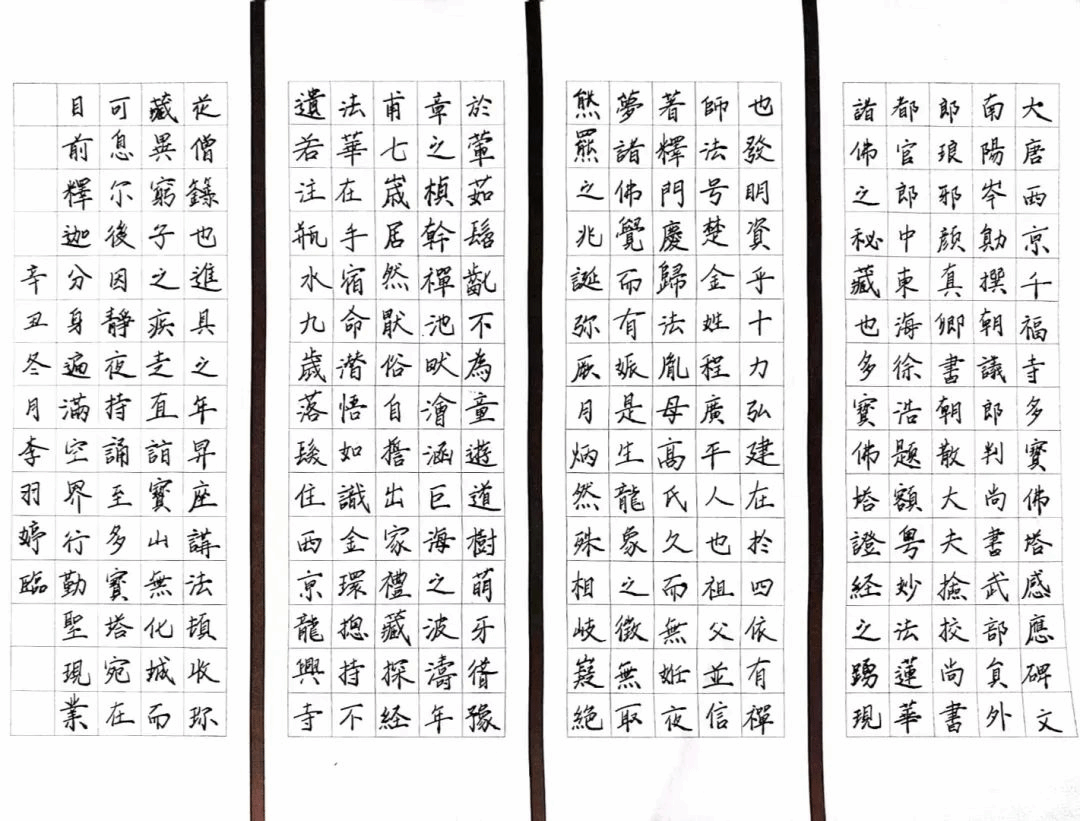 大唐西京千福寺多寶佛塔感應碑文
南陽岑勛撰朝議郎判尚書武部員外
郎琅邪顏真卿書朝散大夫撿挍尚書
都官郎中東海徐浩題額粵妙法蓮華
諸佛之秘藏也多寶佛塔證経之踴現
也發明資乎十力弘建在扵四依有禪
師法号楚金姓程廣平人也祖父並信
著釋門慶歸法胤母高氏久而無妊夜
夢諸佛覺而有娠是生龍象之徵無取
熊羆之兆誕弥厥月炳然殊相岐嶷絕
於葷茹髫齔不為童遊道樹萌牙偆豫
章之楨幹禪池畎澮涵巨海之波濤年
甫七歲居然猒俗自誓出家禮藏探経
法華在手宿命潛悟如識金環揔持不
遺若注瓶水九歲落髮住西京龍興寺
從僧籙也進具之年昇座講法頓收珎
藏異窮子之疾走直詣寶山無化城而
可息尔後因靜夜持誦至多寶塔宛在
目前釋迦分身遍滿空界行勤聖現業
辛丑冬月李羽婷臨